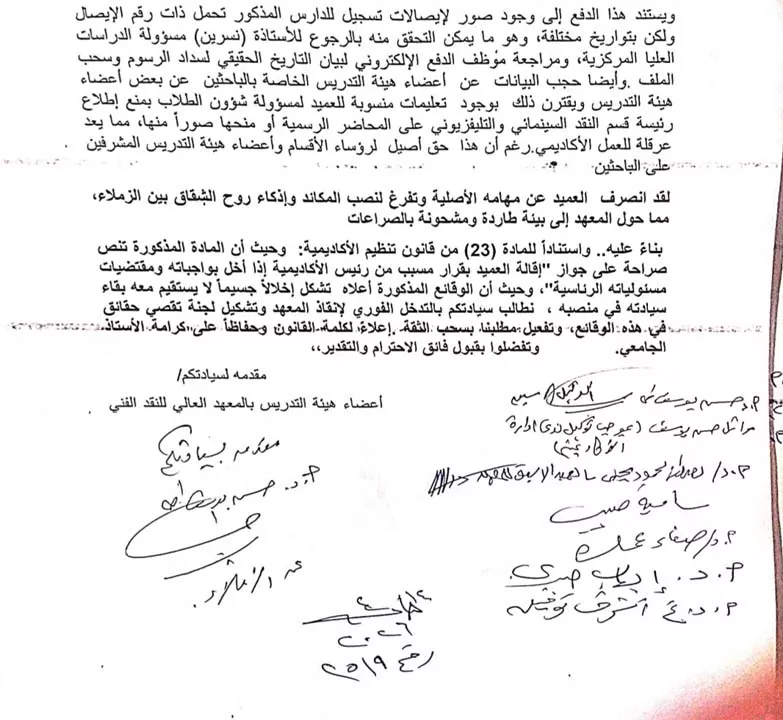 ويستند هذا الدفع إلى وجود صور لإيصالات تسجيل للدارس المذكور تحمل ذات رقم الإيصال
ولكن بتواريخ مختلفة، وهو ما يمكن التحقق منه بالرجوع للأستاذة (نسرين) مسؤولة الدراسات
العليا المركزية، ومراجعة موظف الدفع الإلكتروني لبيان التاريخ الحقيقي لسداد الرسوم وسحب
الملف .وأيضا حجب البيانات عن أعضاء هيئة التدريس الخاصة بالباحثين عن بعض أعضاء
هيئة التدريس ويقترن ذلك بوجود تعليمات منسوبة للعميد لمسؤولة شؤون الطلاب بمنع إطلاع
رئيسة قسم النقد السينمائي والتليفزيوني على المحاضر الرسمية أو منحها صوراً منها، مما يعد
عرقلة للعمل الأكاديمي.رغم أن هذا حق أصيل لرؤساء الأقسام وأعضاء هيئة التدريس المشرفين
على الباحثين
لقد انصرف العميد عن مهامه الأصلية وتفرغ لنصب المكائد وإذكاء روح الشقاق بين الزملاء،
مما حول المعهد إلى بيئة طاردة ومشحونة بالصراعات
بناءً عليه.. واستناداً للمادة (23) من قانون تنظيم الأكاديمية: وحيث أن المادة المذكورة تنص
صراحة على جواز "إقالة العميد بقرار مسبب من رئيس الأكاديمية إذا أخل بواجباته ومقتضيات
مسئولياته الرئاسية"، وحيث أن الوقائع المذكورة أعلاه تشكل إخلالاً جسيماً لا يستقيم معه بقاء
سيادته في منصبه ، نطالب سيادتكم بالتدخل الفوري لإنقاذ المعهد وتشكيل لجنة تقصي حقائق
في هذه الوقائع، وتفعيل مطلبنا بسحب الثقة .إعلاءً لكلمة القانون وحفاظاً على كرامة الأستاذ
الجامعي. وتفضلوا بقبول فائق الاحترام والتقدير،،
مقدمه لسيادتكم/
أعضاء هيئة التدريس بالمعهد العالي للنقد الفني
مقدمه لسيادتكم
أ.د. حسن يوسف
عن الزملاء
أ.د. حسن يوسف
حسن يوسف
سامية حبيب
أ.د/ صفاء
أ.د. إيهاب صبري
أ.د. أشرف توفيق
٢٠٢٦
رقم ٢٥١٩